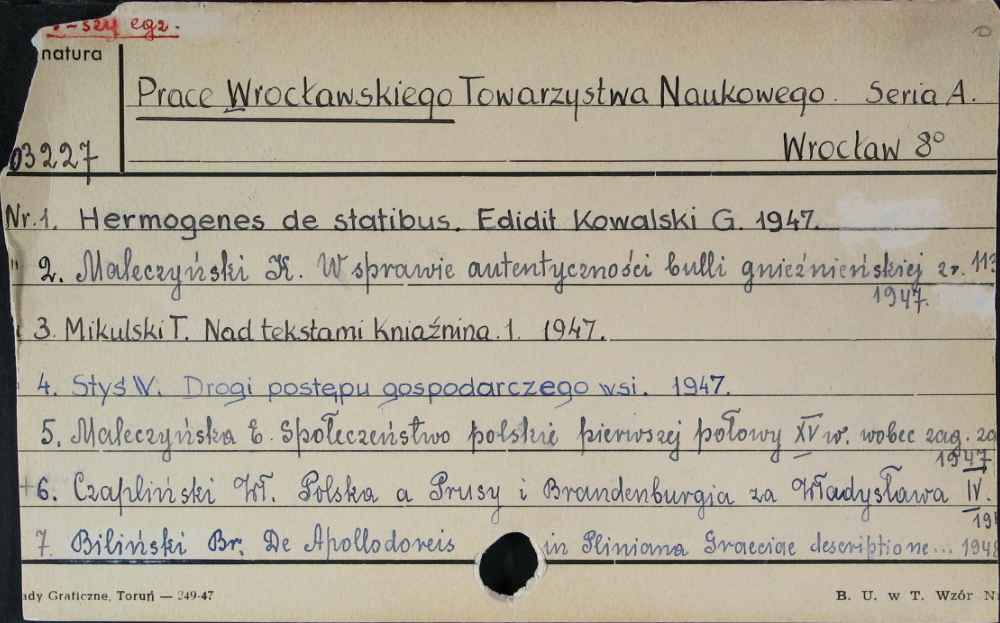 I-szy egz.
natura
Prace Wrocławskiego Towarzystwa Naukowego. Seria A.
03227
Wrocław 8°
Nr. 1. Hermogenes de statibus. Edidit Kowalski G. 1947.
" 2. Maleczyński K. W sprawie autentyczności bulli gnieźnieńskiej z r. 113
1947.
3. Mikulski T. Nad tekstami Kniaźnina. 1. 1947.
4. Styś W. Drogi postępu gospodarczego wsi. 1947.
5. Maleczyńska E. Społeczeństwo polskie pierwszej połowy XV w. wobec zag. za
1947
6. Czapliński Wł. Polska a Prusy i Brandenburgia za Władysława IV.
194
7. Biliński Br. De Apollodoreis in Pliniana Graeciae descriptione... 1948
ady Graficzne, Toruń — 249-47
B. U. w T. Wzór N